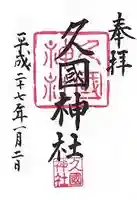 奉拝
久國神社
久國神社
平成二十七年一月二日
久國神社